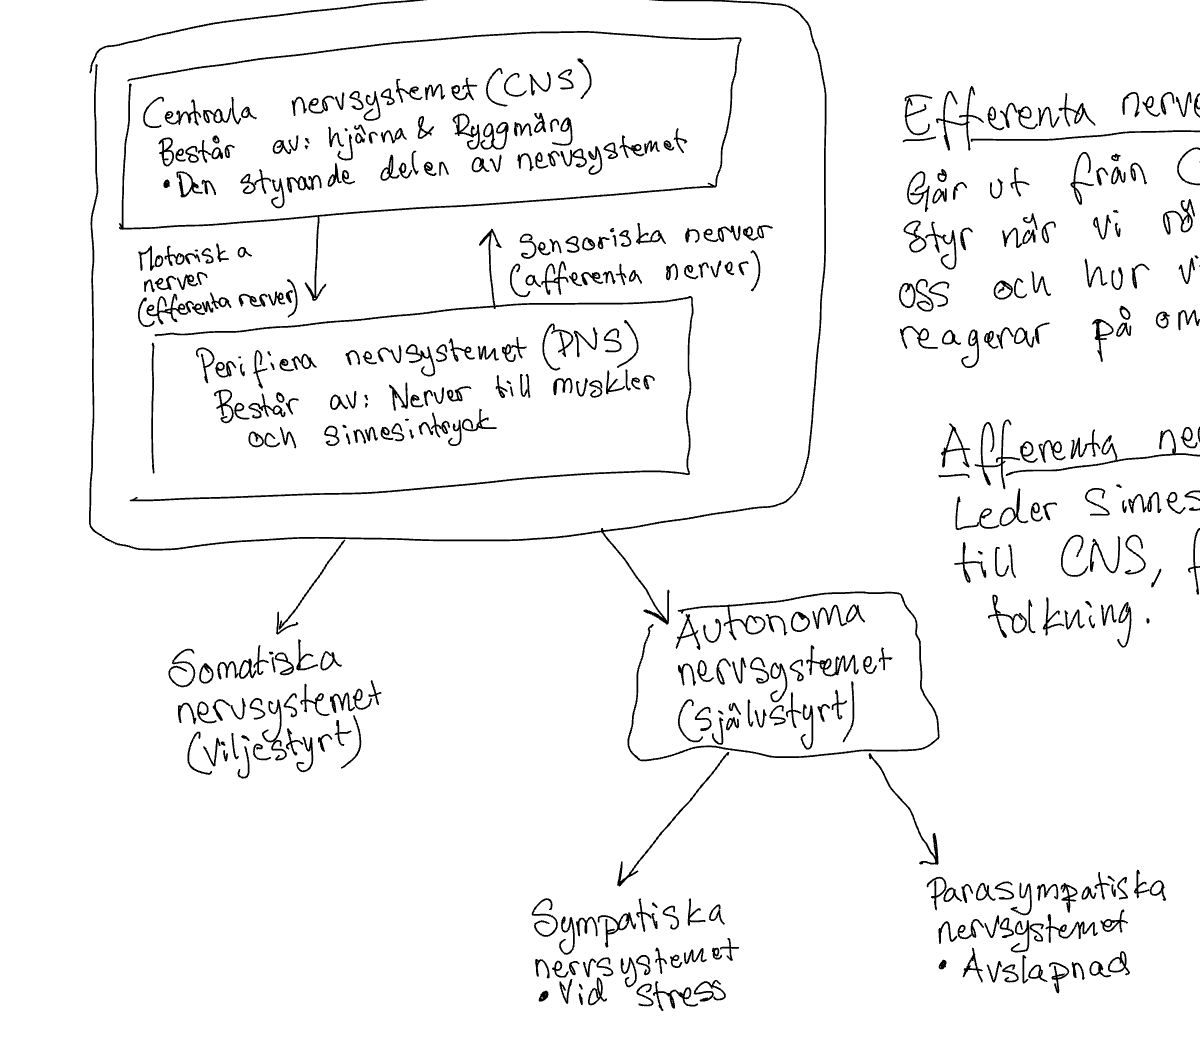 Centrala nervsystemet (CNS)
Består av: hjärna & Ryggmärg
• Den styrande delen av nervsystemet
Motoriska
nerver
(efferenta nerver)
Sensoriska nerver
(afferenta nerver)
Perifiera nervsystemet (PNS)
Består av: Nerver till muskler
och sinnesintryck
Somatiska
nervsystemet
(viljestyrt)
Autonoma
nervsystemet
(självstyrt)
Sympatiska
nervsystemet
• Vid stress
Parasympatiska
nervsystemet
• Avslapnad
Efferenta nerve
Går ut från C
Styr när vi rö
oss och hur vi
reagerar på om
Afferenta ne
Leder Sinnes
till CNS, f
tolkning.